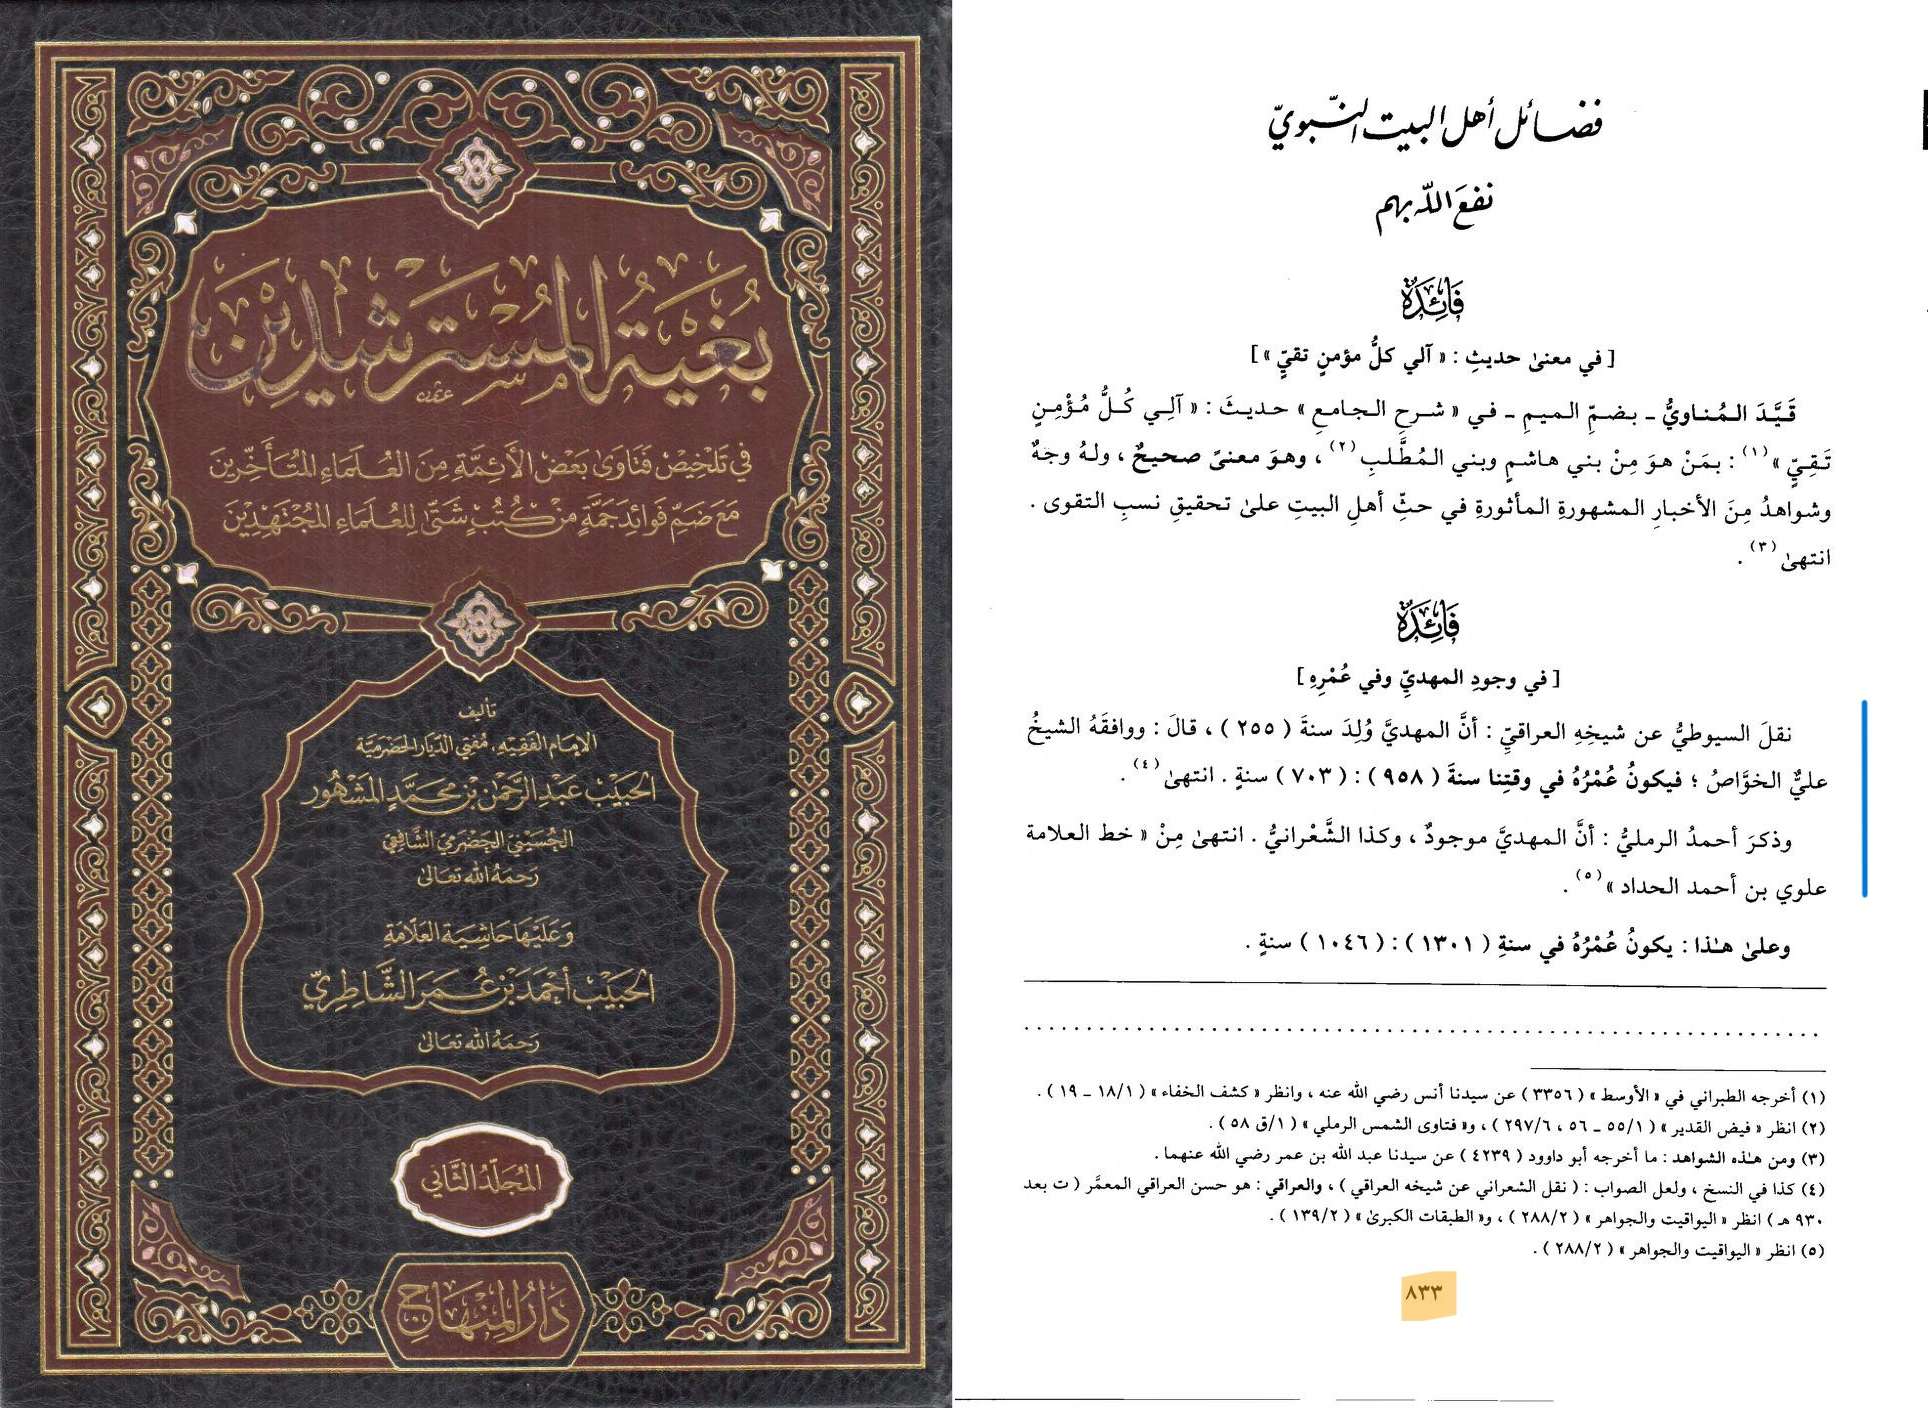 بُغْيَةُ المُسْتَرْشِدِيْنَ
فِي تَلْخِيْصِ فَتَاوَىٰ بَعْضِ الأَئِمَّةِ مِنَ العُلَمَاءِ المُتَأَخِّرِينَ
مَعَ ضَمِّ فَوَائِدَ جَمَّةٍ مِنْ كُتُبٍ شَتَّىٰ لِلْعُلَمَاءِ المُجْتَهِدِيْنَ
تأليف
الإمام الفقيه، مُفتي الدّيار الحَضرميّة
الحَبِيْب عَبْد الرَّحْمٰن بْن مُحَمَّد المَشْهُور
الحُسَيْني الحَضرَمي الشَّافِعِي
رَحِمَهُ اللهُ تعَالىٰ
وَعَلَيْهَا حَاشِيَة العَلَّامَةِ
الحَبِيْب أَحْمَد بْن عُمَر الشَّاطِرِيّ
رَحِمَهُ اللهُ تعَالىٰ
المُجَلَّدُ الثَّانِي
دَارُ المِنْهَاج
فضائل أهل البيت النّبويّ
نفعَ اللّه بهم
فَائِدَةٌ
[ في معنىٰ حديثِ : « آلي كلُّ مؤمنٍ تقيٍّ » ]
قَيَّدَ المُناويُّ - بضمِّ الميمِ - في « شرحِ الجامعِ » حديثَ : « آلِي كُلُّ مُؤْمِنٍ
تَقِيٍّ »(١) : بمَنْ هوَ مِنْ بني هاشمٍ وبني المُطَّلبِ(٢) ، وهوَ معنىً صحيحٌ ، ولهُ وجهٌ
وشواهدُ مِنَ الأخبارِ المشهورةِ المأثورةِ في حثِّ أهلِ البيتِ علىٰ تحقيقِ نسبِ التقوى .
انتهىٰ(٣) .
فَائِدَةٌ
[ في وجودِ المهديِّ وفي عُمْرِهِ ]
نقلَ السيوطيُّ عن شيخِهِ العراقيِّ : أنَّ المهديَّ وُلِدَ سنةَ ( ٢٥٥ ) ، قالَ : ووافقَهُ الشيخُ
عليٌّ الخوَّاصُ ؛ فيكونُ عُمْرُهُ في وقتِنا سنةَ ( ٩٥٨ ) : ( ٧٠٣ ) سنةٍ . انتهىٰ(٤) .
وذكرَ أحمدُ الرمليُّ : أنَّ المهديَّ موجودٌ ، وكذا الشَّعْرانيُّ . انتهىٰ مِنْ « خط العلامة
علوي بن أحمد الحداد »(٥) .
وعلىٰ هـٰذا : يكونُ عُمْرُهُ في سنةِ ( ١٣٠١ ) : ( ١٠٤٦ ) سنةٍ .
(١) أخرجه الطبراني في « الأوسط » ( ٣٣٥٦ ) عن سيدنا أنس رضي الله عنه ، وانظر « كشف الخفاء » ( ١/ ١٨ - ١٩ ) .
(٢) انظر « فيض القدير » ( ١/ ٥٥ - ٥٦ ، ٦/ ٢٩٧ ) ، و« فتاوى الشمس الرملي » ( ١/ق ٥٨ ) .
(٣) ومن هـٰذه الشواهد : ما أخرجه أبو داوود ( ٤٢٣٩ ) عن سيدنا عبد الله بن عمر رضي الله عنهما .
(٤) كذا في النسخ ، ولعل الصواب : ( نقل الشعراني عن شيخه العراقي ) ، والعراقي : هو حسن العراقي المعمَّر ( ت بعد
٩٣٠ هـ ) انظر « اليواقيت والجواهر » ( ٢/ ٢٨٨ ) ، و« الطبقات الكبرىٰ » ( ٢/ ١٣٩ ) .
(٥) انظر « اليواقيت والجواهر » ( ٢/ ٢٨٨ ) .
٨٣٣